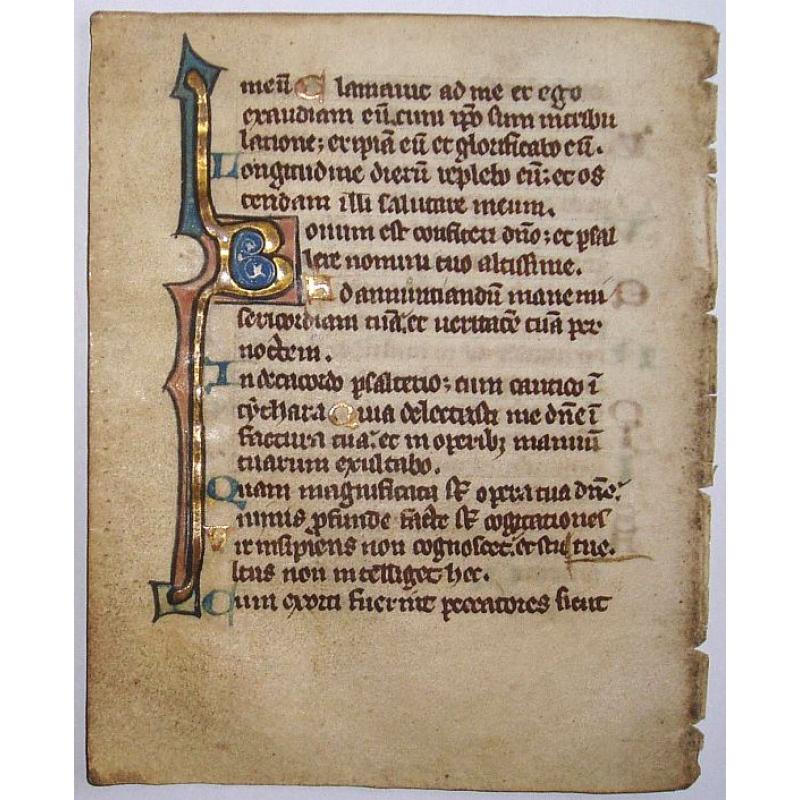 meū Clamauit ad me et ego
exaudiam eū cum ip̄o sum in tribu
latione; eripiā eū et glorificabo eū.
Longitudine dierū replebo eū; et os
tendam illi salutare meum.
Bonum est confiteri dn̄o; et psal
lere nomini tuo altissime.
Ad annuntiandū mane mi
sericordiam tuā. et ueritatē tuā per
noctem.
In decacordo psalterio; cum cantico ī
cythara Quia delectasti me dn̄e ī
factura tua. et in operibꝫ manuū
tuarum exultabo.
Quam magnificata st̄ opera tua dn̄e.
nimis ꝓfunde facte st̄ cogitationes
Vir insipiens non cognoscet. et stu tue.
ltus non intelliget hec.
Cum exorti fuerint peccatores sicut